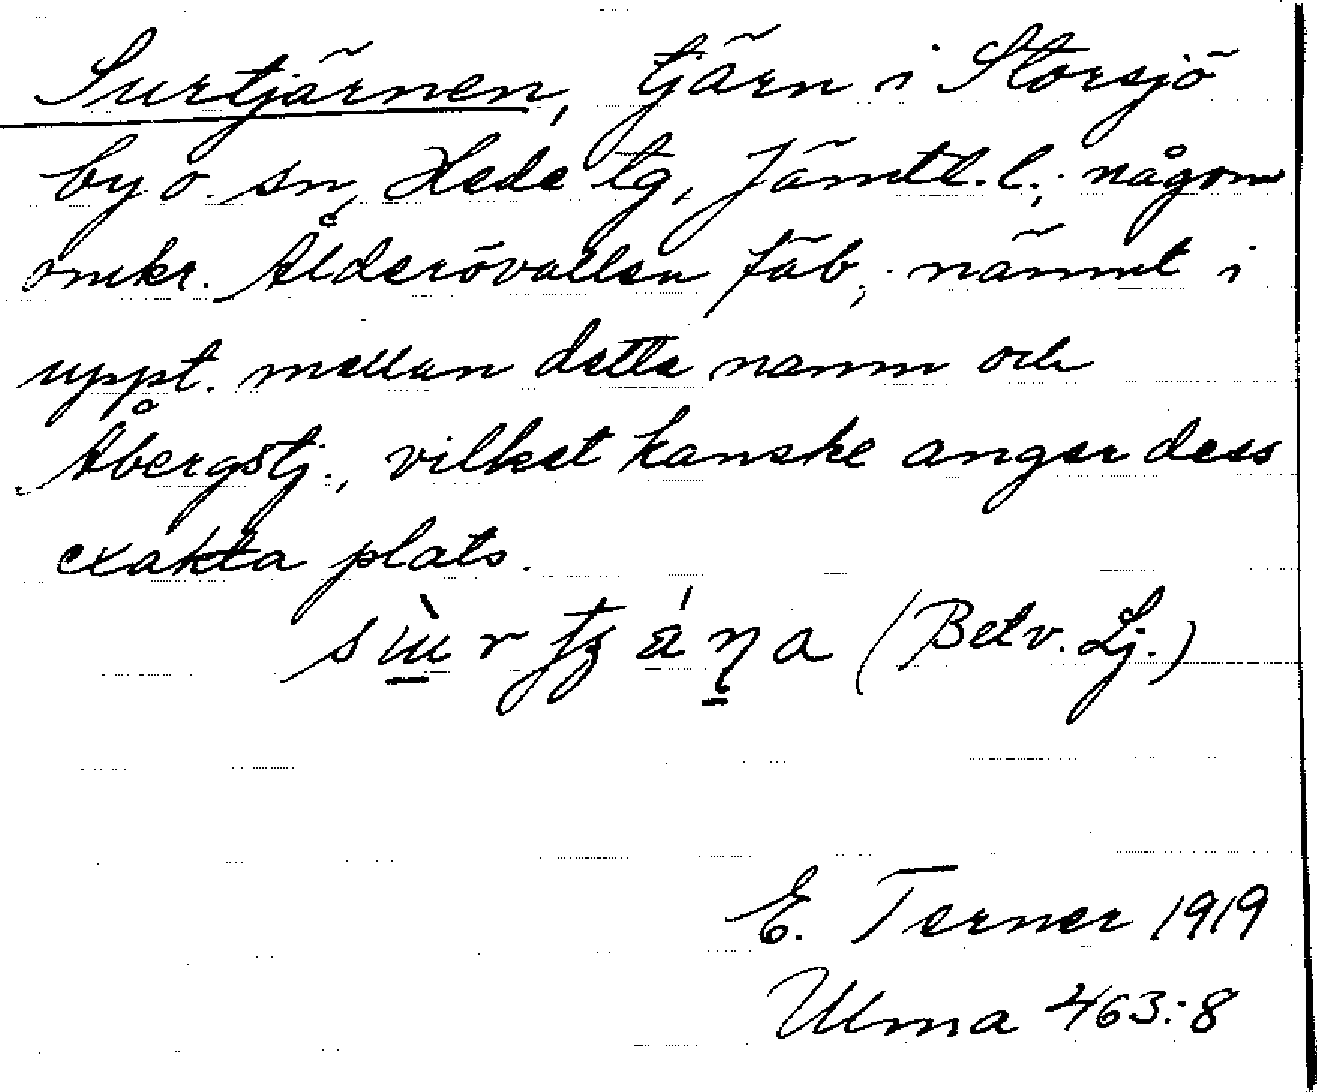 Surtjärnen, tjärn i Storsjö
by o. sn, Hede tg, Jämtl. l.; någon
omkr. Ålderövallen fäb; nämnt i
uppt. mellan detta namn och
Åbergstj., vilket kanske anger dess
exakta plats.
(Betv. Lj.)
E. Terner 1919
Ulma 463:8